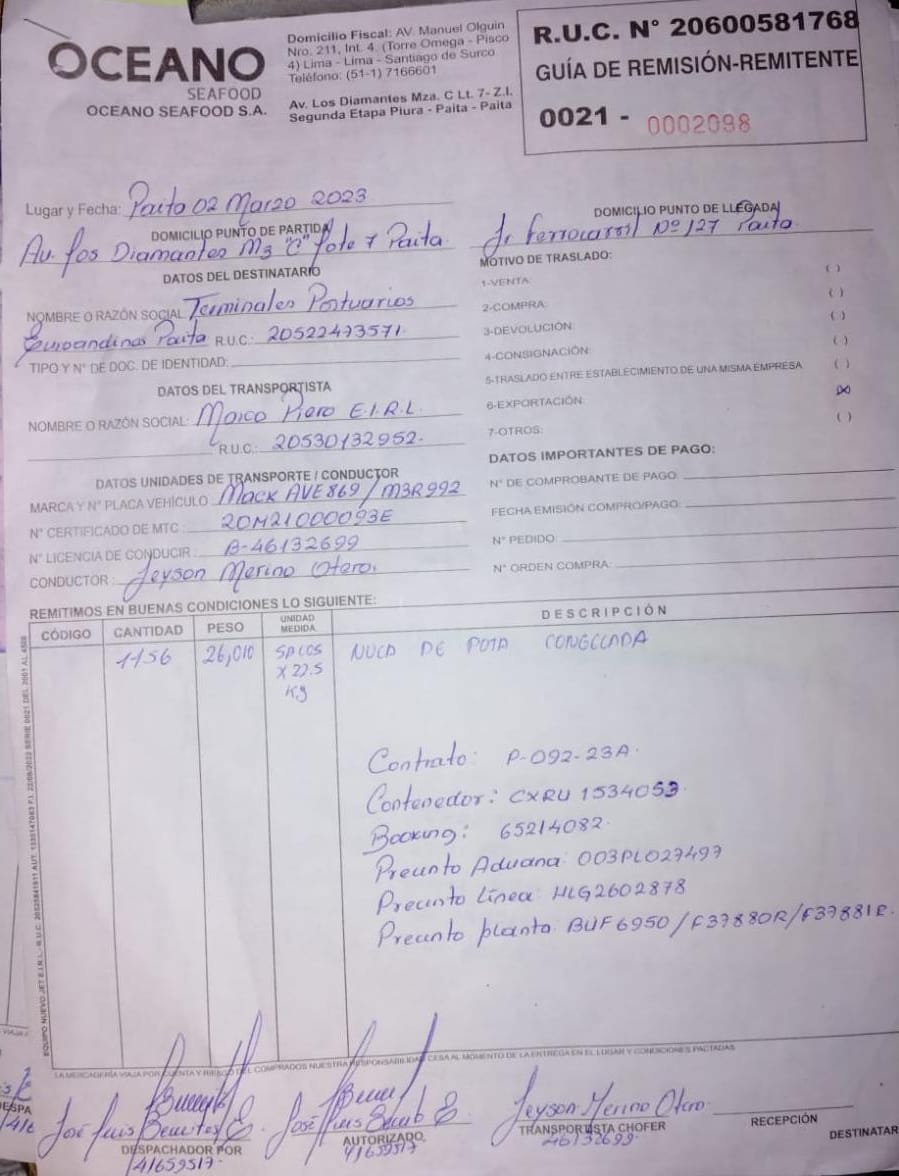 OCEANO
SEAFOOD
OCEANO SEAFOOD S.A.
Domicilio Fiscal: AV. Manuel Olguin
Nro. 211, Int. 4. (Torre Omega - Pisco
4) Lima - Lima - Santiago de Surco
Teléfono: (51-1) 7166601
Av. Los Diamantes Mza. C Lt. 7- Z.I.
Segunda Etapa Piura - Paita - Paita
R.U.C. N° 20600581768
GUÍA DE REMISIÓN-REMITENTE
0021 - 0002098
Lugar y Fecha: Paita 02 Marzo 2023
DOMICILIO PUNTO DE PARTIDA
Av. los Diamantes Mz "C" lote 7 Paita.
DOMICILIO PUNTO DE LLEGADA
Jr Ferrocarril Nº 127 Paita
DATOS DEL DESTINATARIO
NOMBRE O RAZÓN SOCIAL: Terminales Portuarios
Euroandinos Paita R.U.C.: 20522473571
TIPO Y N° DE DOC. DE IDENTIDAD:
DATOS DEL TRANSPORTISTA
NOMBRE O RAZÓN SOCIAL: Marco Piero E.I.R.L.
R.U.C.: 20530132952.
DATOS UNIDADES DE TRANSPORTE / CONDUCTOR
MARCA Y N° PLACA VEHÍCULO: Mack AVE869 / M3R992
N° CERTIFICADO DE MTC: 20M21000093E
N° LICENCIA DE CONDUCIR: B-46132699
CONDUCTOR: Jeyson Merino Otero.
MOTIVO DE TRASLADO:
1-VENTA: ( )
2-COMPRA: ( )
3-DEVOLUCIÓN: ( )
4-CONSIGNACIÓN: ( )
5-TRASLADO ENTRE ESTABLECIMIENTO DE UNA MISMA EMPRESA ( )
6-EXPORTACIÓN: (X)
7-OTROS: ( )
DATOS IMPORTANTES DE PAGO:
N° DE COMPROBANTE DE PAGO:
FECHA EMISIÓN COMPRO/PAGO:
N° PEDIDO:
N° ORDEN COMPRA:
REMITIMOS EN BUENAS CONDICIONES LO SIGUIENTE:
CÓDIGO CANTIDAD PESO UNIDAD MEDIDA DESCRIPCIÓN
1156 26,010 SACOS NUCA DE POTA CONGELADA
X 22.5
Kg
Contrato: P-092-23A.
Contenedor: CXRU 1534053
Booking: 65214082.
Precinto Aduana: 003PL027497
Precinto Línea: HLG2602878
Precinto planta: BUF6950 / F37880R/F37881R.
LA MERCADERÍA VIAJA POR CUENTA Y RIESGO DEL COMPRADOS NUESTRA RESPONSABILIDAD CESA AL MOMENTO DE LA ENTREGA EN EL LUGAR Y CONDICIONES PACTADAS
José Luis Benites E.
DESPACHADOR POR
41659517
José Luis E
AUTORIZADO,
41659517
Jeyson Merino Otero.
TRANSPORTISTA CHOFER
46132699
RECEPCIÓN
DESTINATAR